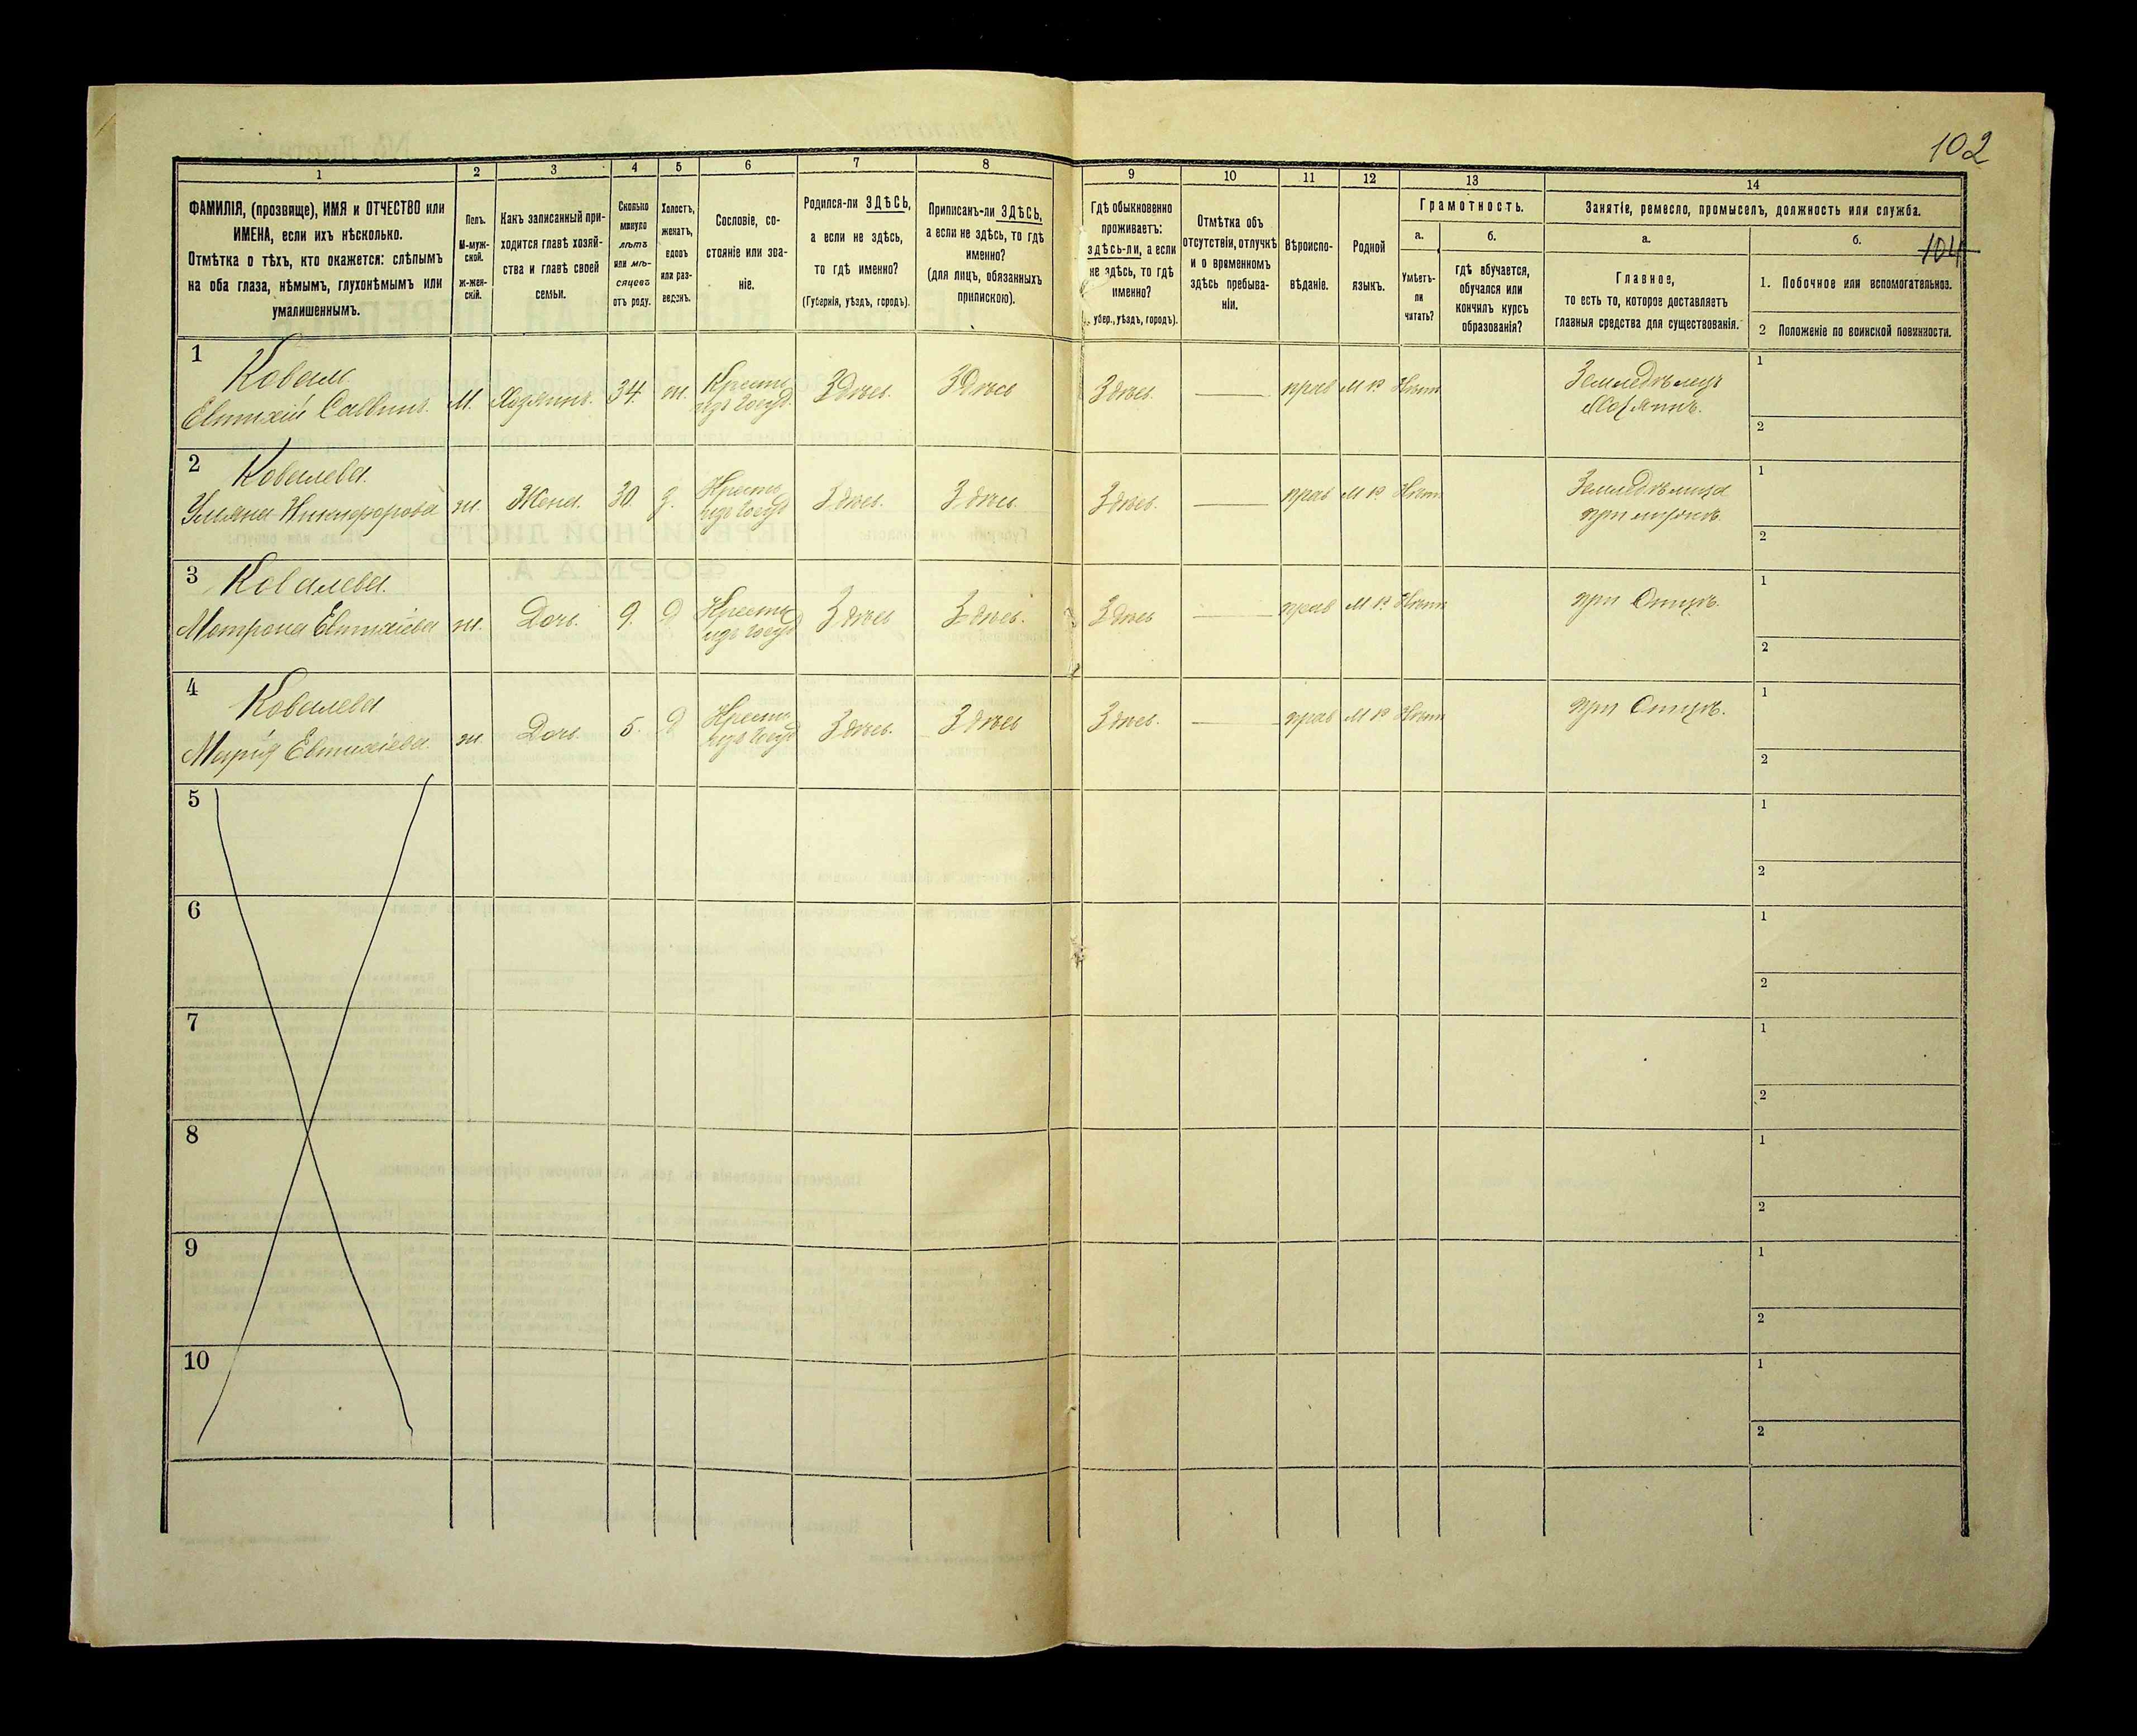 102
1
2
3
4
5
6
7
8
9
10
11
12
13
14
ФАМИЛІЯ, (прозвище), ИМЯ и ОТЧЕСТВО или
ИМЕНА, если ихъ нѣсколько.
Отмѣтка о тѣхъ, кто окажется: слѣпымъ
на оба глаза, нѣмымъ, глухонѣмымъ или
умалишеннымъ.
Полъ.
М-муж-
ской.
ж-жен-
скій.
Какъ записанный при-
ходится главѣ хозяй-
ства и главѣ своей
семьи.
Сколько
минуло
лѣтъ
или мѣ-
сяцевъ
отъ роду.
Холостъ,
женатъ,
вдовъ
или раз-
веденъ.
Сословіе, со-
стояніе или зва-
ніе.
Родился-ли ЗДѢСЬ,
а если не здѣсь,
то гдѣ именно?
(Губернія, уѣздъ, городъ).
Приписанъ-ли ЗДѢСЬ,
а если не здѣсь, то гдѣ
именно?
(для лицъ, обязанныхъ
припискою).
Гдѣ обыкновенно
проживаетъ:
здѣсь-ли, а если
не здѣсь, то гдѣ
именно?
убер., уѣздъ, городъ).
Отмѣтка объ
отсутствіи, отлучкѣ
и о временномъ
здѣсь пребыва-
ніи.
Вѣроиспо-
вѣданіе.
Родной
языкъ.
Грамотность.
а.
Умѣетъ-
ли
читать?
б.
гдѣ обучается,
обучался или
кончилъ курсъ
образованія?
Занятіе, ремесло, промыселъ, должность или служба.
а.
Главное,
то есть то, которое доставляетъ
главныя средства для существованія.
б.
104
1. Побочное или вспомогательное.
2 Положеніе по воинской повинности.
1
Коваль
Евтихій Саввинъ. М. Хозяинъ. 34. ж. Кресть. Здѣсь. Здѣсь Здѣсь. — прав М Р Нѣтъ Земледѣлецъ 1
изъ госуд. Хозяинъ. 2
2
Ковалева.
Ульяна Никифорова ж. Жена. 30. Кресть Здѣсь. Здѣсь. Здѣсь. — прав М Р. Нѣтъ Земледѣлица 1
изъ госуд при мужѣ. 2
3
Ковалева.
Матрона Евтихіева ж. Дочь. 9. Кресть Здѣсь Здѣсь. Здѣсь — прав М Р. Нѣтъ при Отцѣ. 1
изъ госуд 2
4
Ковалева
Марія Евтихіева. ж. Дочь. 5. Кресть Здѣсь. Здѣсь Здѣсь. — прав М Р Нѣтъ при Отцѣ. 1
изъ госуд 2
5
1
2
6
1
2
7
1
2
8
1
2
9
1
2
10
1
2